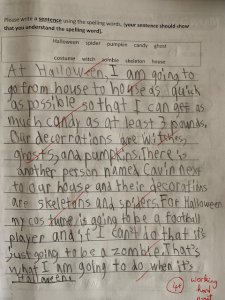 Please write a sentence using the spelling words, (your sentence should show
that you understand the spelling word).
Halloween spider pumpkin candy ghost
costume witch zombie skeleton house
At Halloween, I am going to
go from house to house as quick
as possible so that I can get as
much candy as at least 3 pounds.
Our decorrations are witches,
ghosts, and pumpkins. There is
another person named Cavin next
to our house and their decorations
are skeletons and spiders. For Halloween
my costume is going to be a football
player and if I can't do that it's
just going to be a zombie. That's
what I am going to do when it's
Halloween.
working
hard